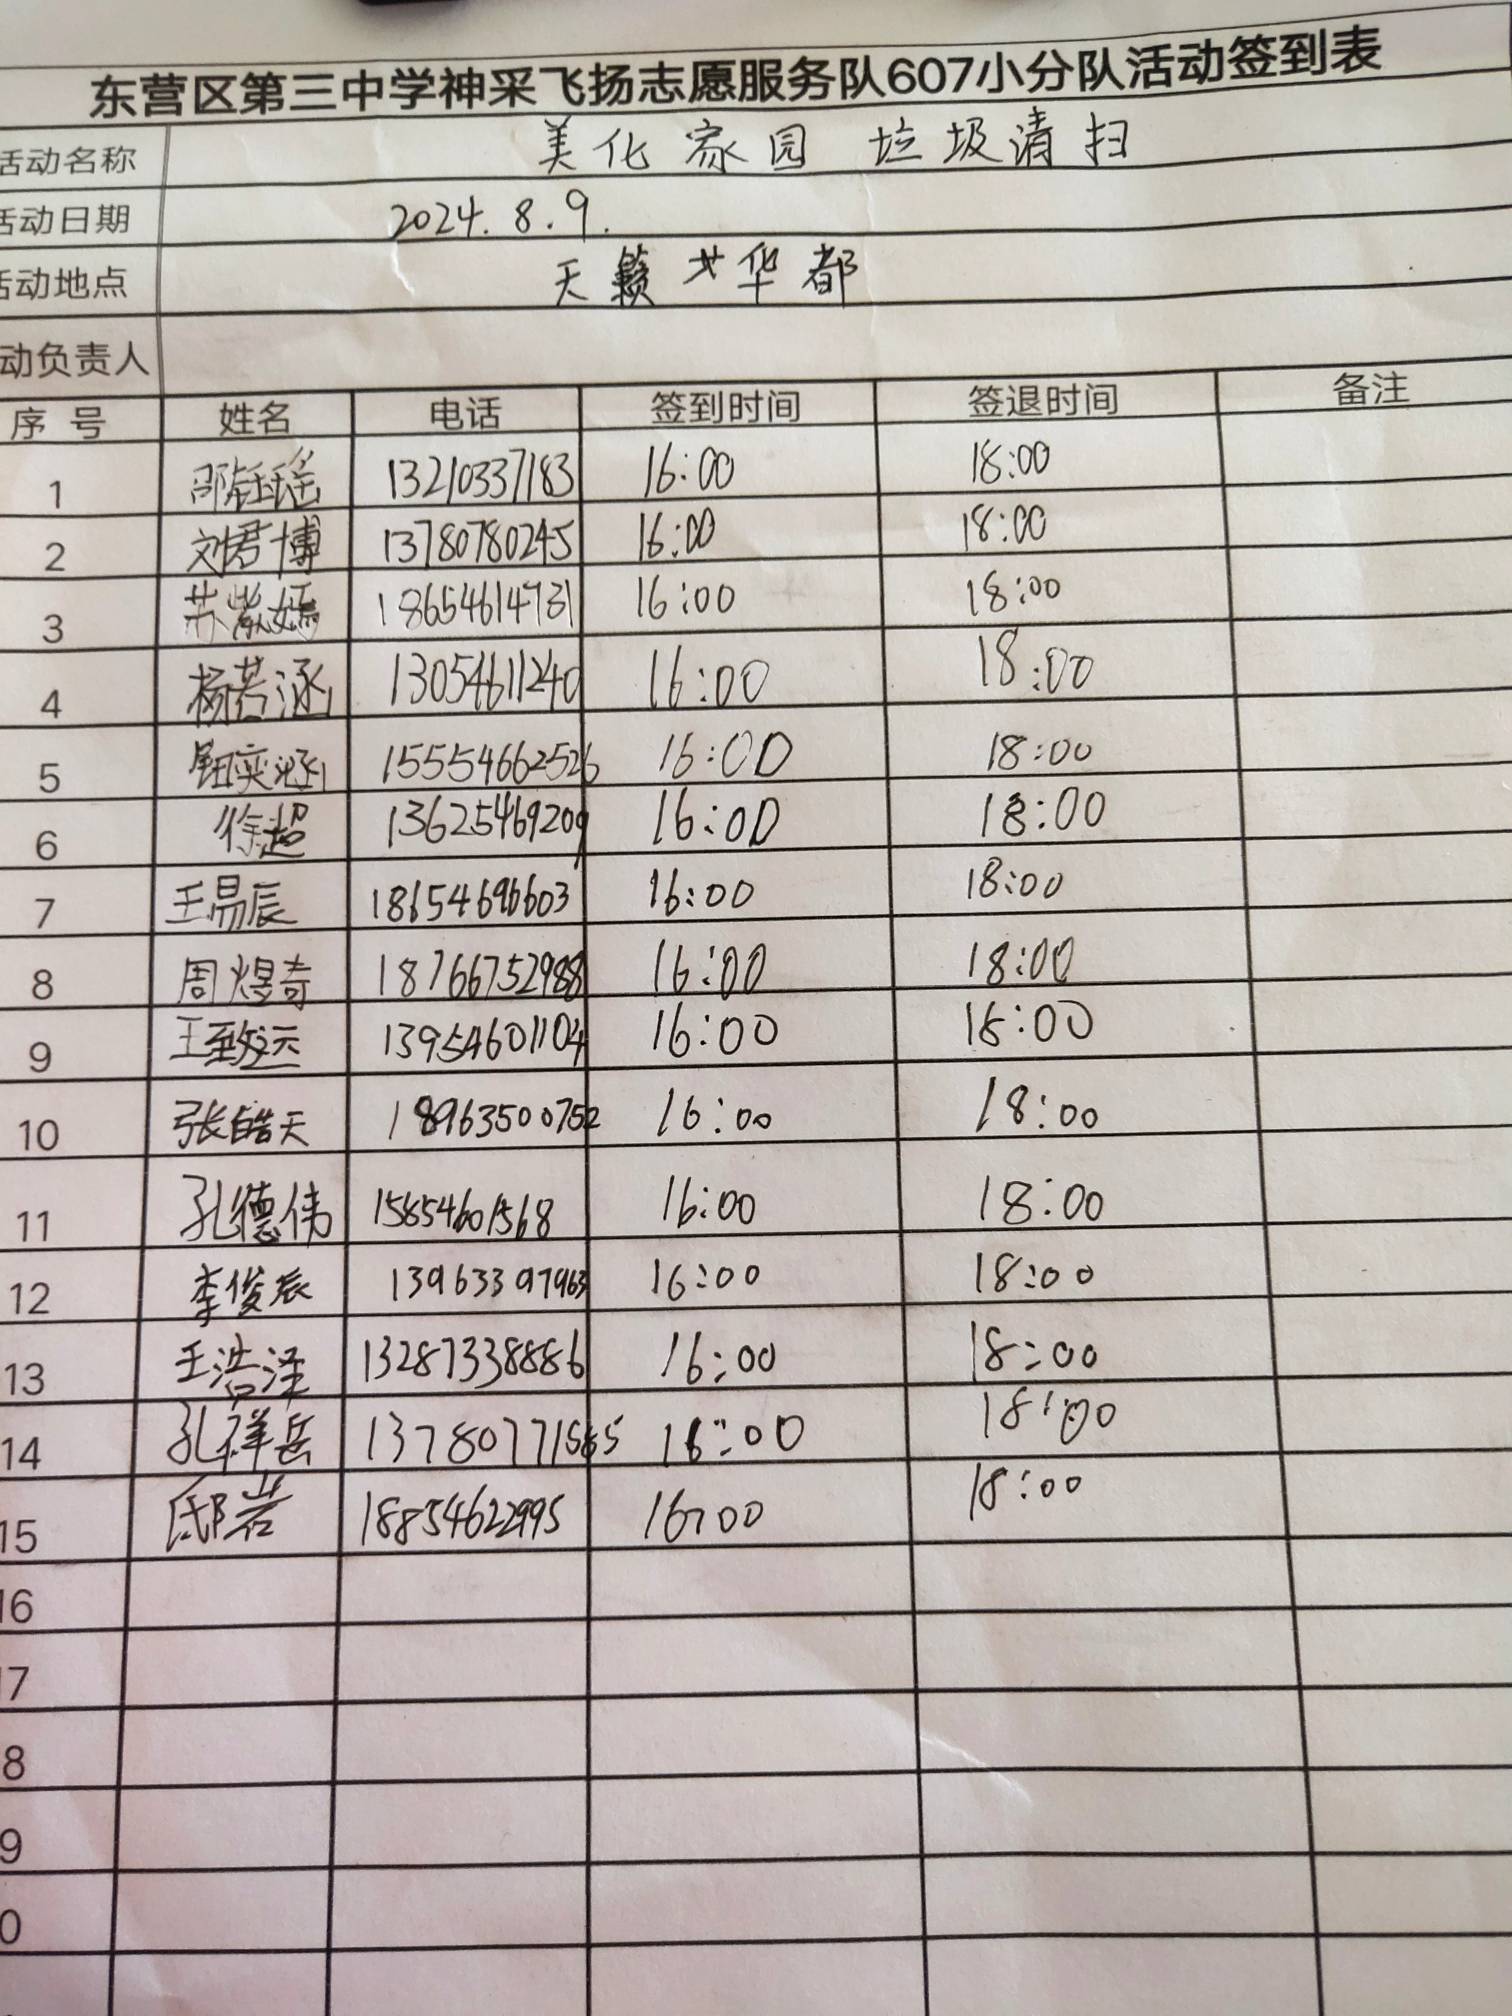 东营区第三中学神采飞扬志愿服务队607小分队活动签到表
活动名称 美化家园 垃圾清扫
活动日期 2024.8.9.
活动地点 天籁 华都
动负责人
序号 姓名 电话 签到时间 签退时间 备注
1 邵钰瑶 13210337183 16:00 18:00
2 刘君博 13780780245 16:00 18:00
3 苏紫嫣 18654614731 16:00 18:00
4 杨若涵 13054611240 16:00 18:00
5 奕涵 15554662526 16:00 18:00
6 徐超 13625469209 16:00 18:00
7 王易辰 18654696603 16:00 18:00
8 周煜奇 18766752988 16:00 18:00
9 王致远 13954601104 16:00 18:00
10 张皓天 18963500752 16:00 18:00
11 孔德伟 15854601568 16:00 18:00
12 李俊辰 13963397963 16:00 18:00
13 王浩泽 13287338886 16:00 18:00
14 孔祥岳 16:00 18:00
15 邸岩 18854622995 16:00 18:00
16
17
8
9
0